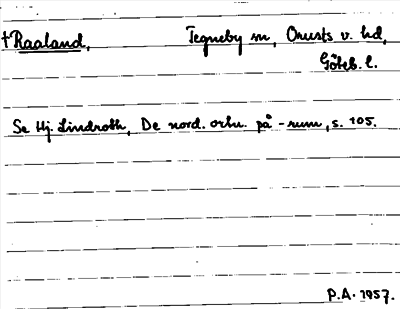 †Raaland. Tegneby sn, Orusts v. hd,
Göteb. l.
Se Hj. Lindroth, De nord. ortn. på -rum, s. 105.
P.A. 1957.